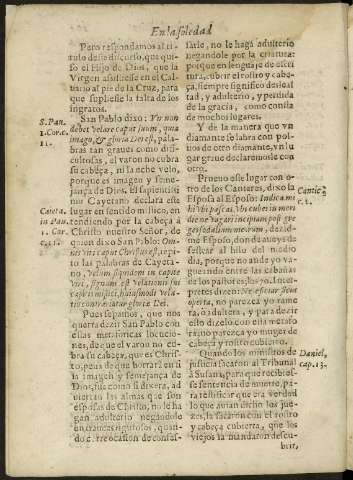 En la soledad
Pero respondamos al ti-
tulo deste discurso, que qui-
so el Hijo de Dios, que la
Virgen assistiesse en el Cal-
uario al pie de la Cruz, para
que supliesse la falta de los
ingratos.
S. Pau.
1. Cor. c.
11.
San Pablo dixo: Vir non
debet velare caput suum, quia
imago, & gloria Dei est, pala-
bras tan graues como difi-
cultosas, el varon no cubra
su cabeça, ni la eche velo,
porque es imagen y seme-
jança de Dios. El sapientissi
mo Cayetano declara este
lugar en sentido mistico, en
tendiendo por la cabeça à
Christo nuestro Señor, de
quien dixo San Pablo: Om-
nis viri caput Christus est,
las palabras de Cayeta-
no, Velum siquidem in capite
viri, signum est
Caieta.
in Pau.
1. Cor.
c. 11.
Pues sepamos, que nos
querra dezir San Pablo con
estas metaforicas locucio-
nes, de que el varon no cu-
bra su cabeça, que es Chris-
to, pena de que borrarà en si
la imagen y semejança de
Dios, fue como si dixera, ad
uiertan las almas que son
esposas de Christo, no le ha
gan adulterio negandole
en trances rigurosos, quan-
do se ofreciere ocasion de confes-
sarle, no le hagã adulterio
negandole por la criatura:
porque en lenguaje de escri
tura, cubrir el rostro y cabe
ça, siempre significò deslealt
tad, y adulterio, y perdida
de la gracia, como consta
de muchos lugares.
Y de la manera que vn
diamante se labra con pol-
uos de otro diamante, vn lu
gar graue declaremosle con
otro.
Prueuo esse lugar con o-
tro de los Cantares, dixo la
Esposa al Esposo: Indica mi
hi vbi pascas, vbi cubes in meri
die ne vagari incipiam post gre
ges sodalium meorum, dezid
me Esposo, donde aueys de
sestear al hilo del medio
dia, porque no ande yo va-
gueando entre las cabañas
de los pastores, los 70. Inter-
pretes dizen: Ne efficiar sicut
operta, no parezca yo rame
ra, ò adultera, y para dezir
esto dizelo con esta metafo
ra no parezca yo muger de
cabeça y rostro cubierto.
Cantic.
c. 1.
Quando los ministros de
justicia sacaron al Tribunal
à Susana, para que recibies-
se sentencia de muerte, pa-
ra testificar que era verdad
lo que auian dicho los jue-
zes, la sacaron con el rostro
y cabeça cubierta, que los
viejos la mandaron descu-
brir,
Daniel,
cap. 13.